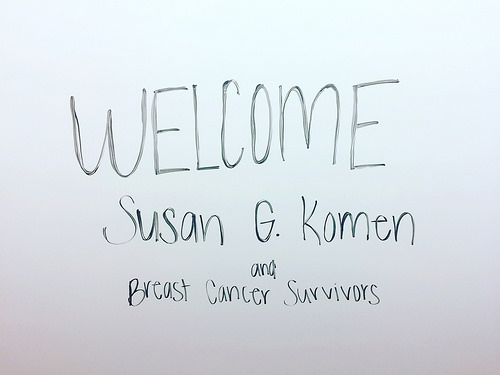 WELCOME
Susan G. Komen
and
Breast Cancer Survivors